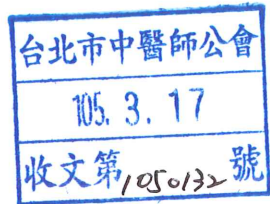 台北市中醫師公會
105. 3. 17
收文第1050132號